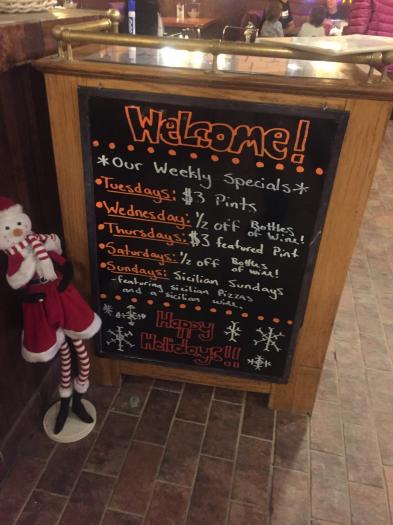 Welcome!
*Our Weekly Specials*
•Tuesdays: $3 Pints
•Wednesday: 1/2 off Bottles of Wine!
•Thursdays: $3 featured Pint
•Saturdays: 1/2 off Bottles of wine!
•Sundays: Sicilian Sundays
-featuring sicilian Pizzas
and a sicilian wine.
Happy
Holidays!!